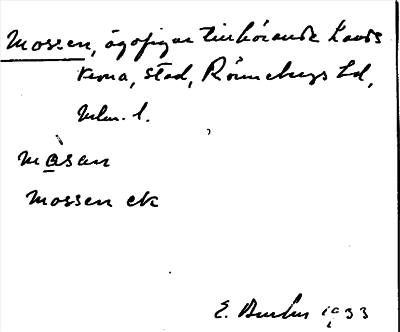 Mossen, ägofigur tillhörande Lands
krona, stad, Rönnebergs hd,
Mlm. l.
måsan
mossen ek
E. 1933